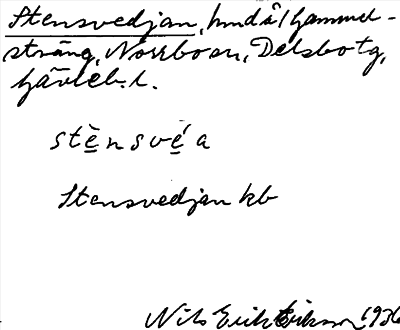 Stensvedjan, hmd å/Gammel-
sträng, Norrbo sn, Delsbo tg,
Gävleb. l.
stè̱nsvé̱a
Stensvedjan kb
Nils Erik Erikson 1936